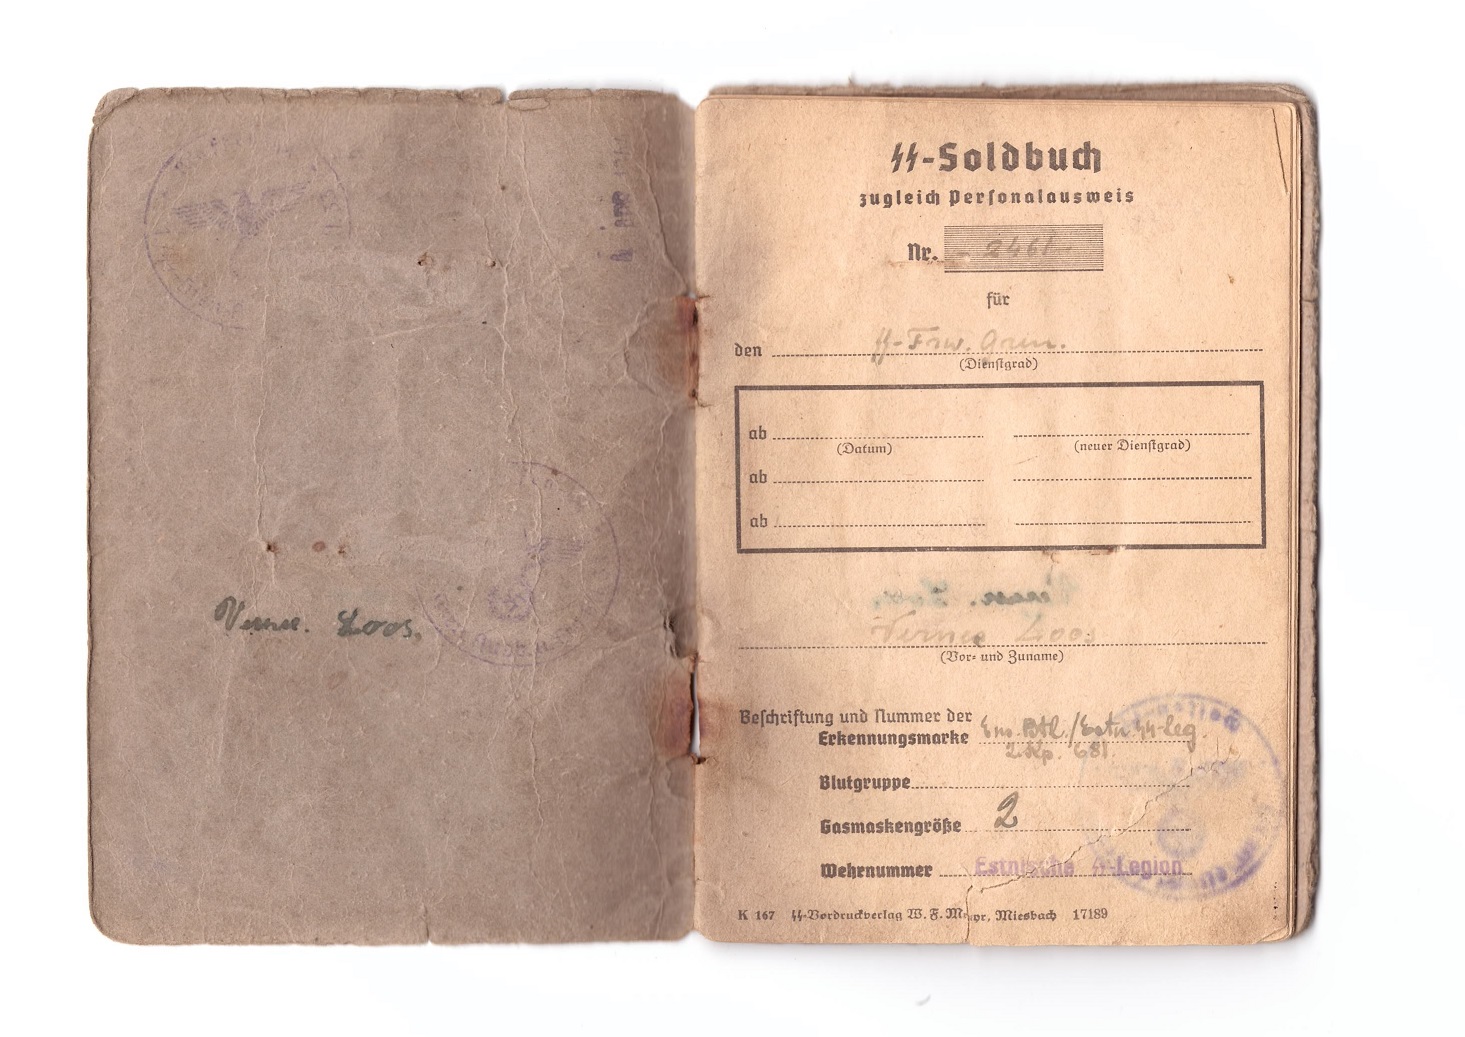 Loos.
ᛋᛋ-Soldbuch
zugleich Personalausweis
Nr. 2461.
für
den ᛋᛋ-Frw. Gren.
(Dienstgrad)
ab
(Datum) (neuer Dienstgrad)
ab
ab
Loos
(Vor- und Zuname)
Beschriftung und Nummer der
Erkennungsmarke Btl./Estn. ᛋᛋ-Leg.
2.Kp. 681.
Blutgruppe
Gasmaskengröße 2
Wehrnummer Estnische ᛋᛋ-Legion
K 167 ᛋᛋ-Vordruckverlag W. F. Mayr, Miesbach 17189